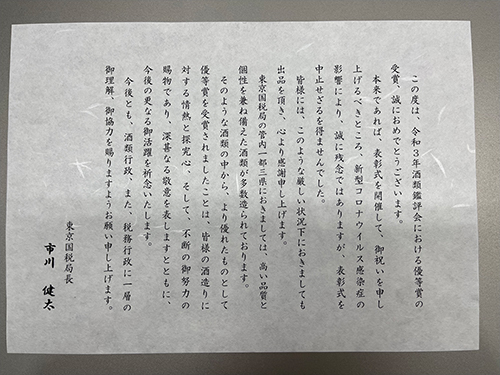 この度は、令和3年酒類鑑評会における優等賞の
受賞、誠におめでとうございます。
本来であれば、表彰式を開催して、御祝いを申し
上げるべきところ、新型コロナウイルス感染症の
影響により、誠に残念ではありますが、表彰式を
中止せざるを得ませんでした。
皆様には、このような厳しい状況下におきましても
出品を頂き、心より感謝申し上げます。
東京国税局の管内一都三県におきましては、高い品質と
個性を兼ね備えた酒類が多数造られております。
そのような酒類の中から、より優れたものとして
優等賞を受賞されましたことは、皆様の酒造りに
対する情熱と探究心、そして、不断の御努力の
賜物であり、深甚なる敬意を表しますとともに、
今後の更なる御活躍を祈念いたします。
今後とも、酒類行政、また、税務行政に一層の
御理解、御協力を賜りますようお願い申し上げます。
東京国税局長
市川 健太